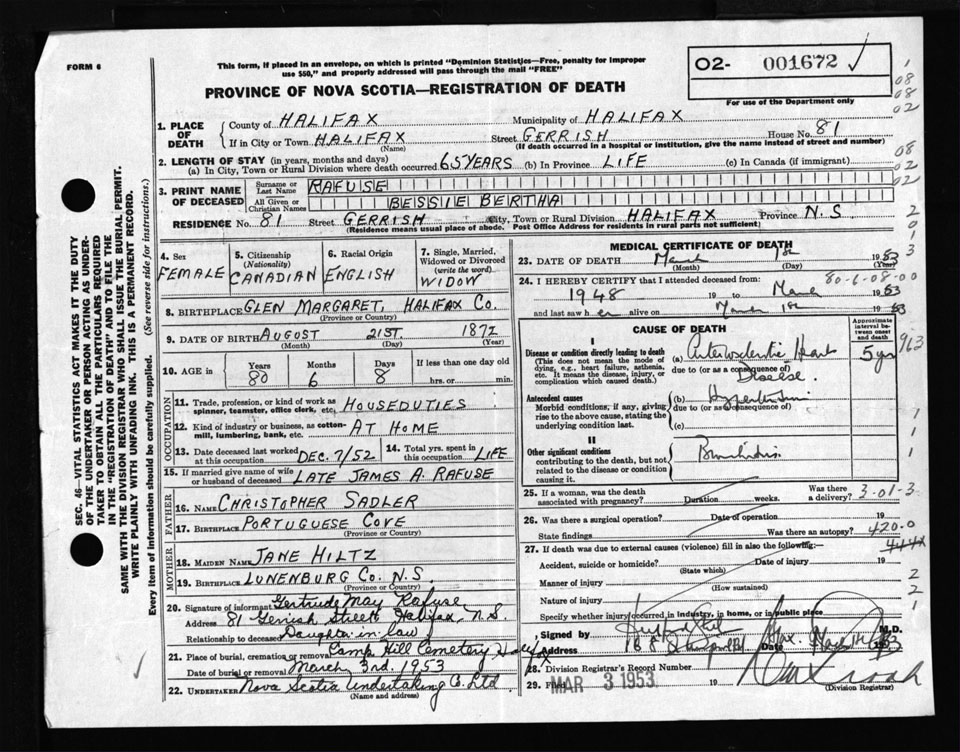 FORM 6
This form, if placed in an envelope, on which is printed "Dominion Statistics—Free, penalty for improper
use $50," and properly addressed will pass through the mail "FREE"
02- 001672 ✓
For use of the Department only
PROVINCE OF NOVA SCOTIA—REGISTRATION OF DEATH
1. PLACE OF DEATH
County of HALIFAX Municipality of HALIFAX
If in City or Town HALIFAX Street GERRISH House No. 81
(Name) (If death occurred in a hospital or institution, give the name instead of street and number)
2. LENGTH OF STAY (in years, months and days)
(a) In City, Town or Rural Division where death occurred 65 YEARS (b) In Province LIFE (c) In Canada (if immigrant)
3. PRINT NAME OF DECEASED
Surname or Last Name RAFUSE
All Given or Christian Names BESSIE BERTHA
RESIDENCE No. 81 Street GERRISH City, Town or Rural Division HALIFAX Province N.S.
(Residence means usual place of abode. Post Office Address for residents in rural parts not sufficient)
4. Sex FEMALE
5. Citizenship (Nationality) CANADIAN
6. Racial Origin ENGLISH
7. Single, Married, Widowed or Divorced (write the word) WIDOW
8. BIRTHPLACE GLEN MARGARET, HALIFAX Co.
(Province or Country)
9. DATE OF BIRTH AUGUST 21ST. 1872
(Month) (Day) (Year)
10. AGE in Years 80 Months 6 Days 8 If less than one day old
hrs. or min.
OCCUPATION
11. Trade, profession, or kind of work as spinner, teamster, office clerk, etc. HOUSEDUTIES
12. Kind of industry or business, as cotton-mill, lumbering, bank, etc. AT HOME
13. Date deceased last worked at this occupation DEC. 7/52
14. Total yrs. spent in this occupation LIFE
15. If married give name of wife or husband of deceased LATE JAMES A. RAFUSE
FATHER
16. Name CHRISTOPHER SADLER
17. Birthplace PORTUGUESE COVE
(Province or Country)
MOTHER
18. MAIDEN NAME JANE HILTZ
19. BIRTHPLACE LUNENBURG Co. N.S.
(Province or Country)
20. Signature of informant Gertrude May Rafuse
Address 81 Gerrish Street Halifax, N.S.
Relationship to deceased Daughter in law
21. Place of burial, cremation or removal Camp Hill Cemetery
Date of burial or removal March 3rd. 1953
22. UNDERTAKER Nova Scotia Undertaking Co. Ltd
(Name and address)
MEDICAL CERTIFICATE OF DEATH
23. DATE OF DEATH March 1st 1953
(Month) (Day) (Year)
80-6-08-00
24. I HEREBY CERTIFY that I attended deceased from:
1948 19 to March 1953
and last saw her alive on March 1st 1953
CAUSE OF DEATH
Approximate interval between onset and death
I
Disease or condition directly leading to death
This does not mean the mode of dying, e.g., heart failure, asthenia, etc. It means the disease, injury, or complication which caused death.
(a) Heart Disease. 5 yrs
due to (or as a consequence of)
Antecedent causes
Morbid conditions, if any, giving rise to the above cause, stating the underlying condition last.
(b) Hypertension
due to (or as a consequence of)
(c)
II
Other significant conditions
contributing to the death, but not related to the disease or condition causing it.
25. If a woman, was the death associated with pregnancy? Duration weeks. Was there a delivery? 3-01-3
26. Was there a surgical operation? Date of operation 19
State findings Was there an autopsy? 420.0
27. If death was due to external causes (violence) fill in also the following:—
Accident, suicide or homicide? Date of injury 19
(State which)
Manner of injury
(How sustained)
Nature of injury
Specify whether injury occurred in industry, in home, or in public place
Signed by M.D.
Address 168 Date
28. Division Registrar's Record Number
29. Filed MAR 3 1953 19
(Division Registrar)
SEC. 46—VITAL STATISTICS ACT MAKES IT THE DUTY
OF THE UNDERTAKER OR PERSON ACTING AS UNDER-
TAKER TO OBTAIN ALL THE PARTICULARS REQUIRED
IN THE "REGISTRATION OF DEATH" AND TO FILE THE
SAME WITH THE DIVISION REGISTRAR WHO SHALL ISSUE THE BURIAL PERMIT.
WRITE PLAINLY WITH UNFADING INK. THIS IS A PERMANENT RECORD.
Every item of information should be carefully supplied. (See reverse side for instructions.)